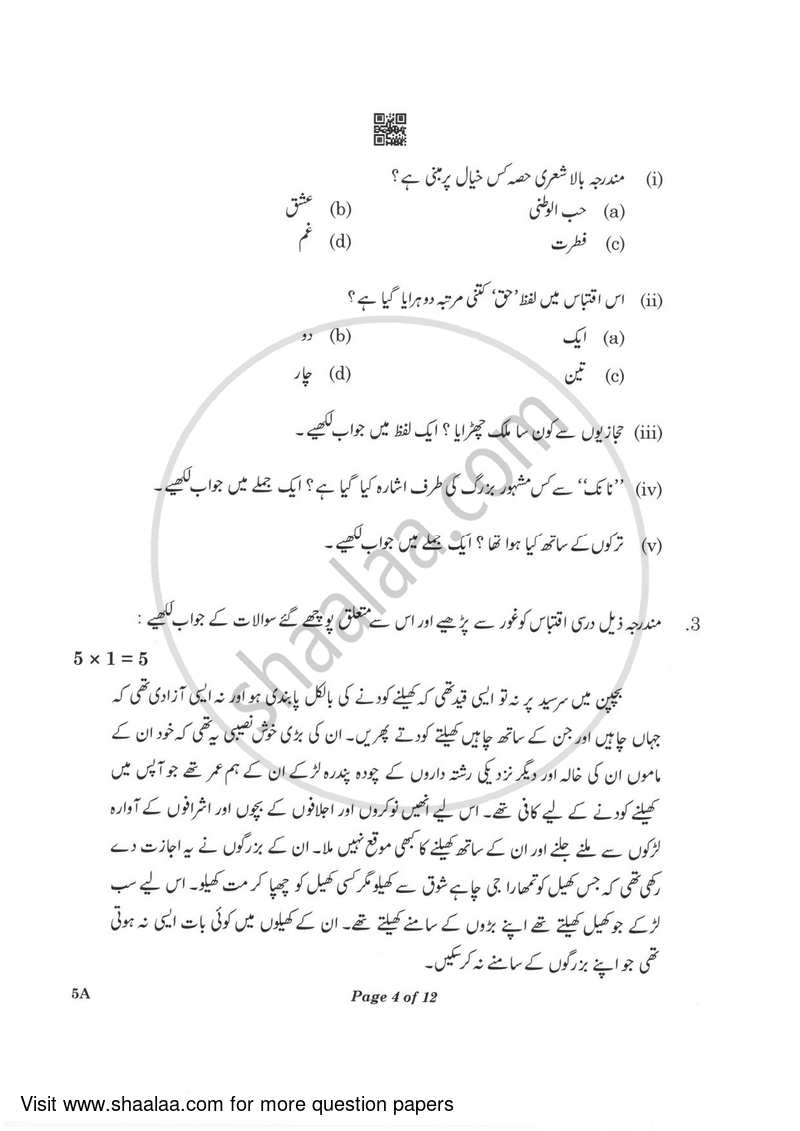 (i) مندرجہ بالا شعری حصہ کس خیال پر مبنی ہے؟
(a) حب الوطنی (b) عشق
(c) فطرت (d) غم
(ii) اس اقتباس میں لفظ ’حق‘ کتنی مرتبہ دوہرایا گیا ہے؟
(a) ایک (b) دو
(c) تین (d) چار
(iii) حجازیوں سے کون سا ملک چھڑایا؟ ایک لفظ میں جواب لکھیے۔
(iv) ’’نانک‘‘ سے کس مشہور بزرگ کی طرف اشارہ کیا گیا ہے؟ ایک جملے میں جواب لکھیے۔
(v) ترکوں کے ساتھ کیا ہوا تھا؟ ایک جملے میں جواب لکھیے۔
3. مندرجہ ذیل درسی اقتباس کو غور سے پڑھیے اور اس سے متعلق پوچھے گئے سوالات کے جواب لکھیے :
5 × 1 = 5
بچپن میں سرسید پر نہ تو ایسی قید تھی کہ کھیلنے کودنے کی بالکل پابندی ہو اور نہ ایسی آزادی تھی کہ
جہاں چاہیں اور جن کے ساتھ چاہیں کھیلتے کودتے پھریں۔ ان کی بڑی خوش نصیبی یہ تھی کہ خود ان کے
ماموں ان کی خالہ اور دیگر نزدیکی رشتہ داروں کے چودہ پندرہ لڑکے ان کے ہم عمر تھے جو آپس میں
کھیلنے کودنے کے لیے کافی تھے۔ اس لیے انھیں نوکروں اور اجلافوں کے بچوں اور اشرافوں کے آوارہ
لڑکوں سے ملنے جلنے اور ان کے ساتھ کھیلنے کا کبھی موقع نہیں ملا۔ ان کے بزرگوں نے یہ اجازت دے
رکھی تھی کہ جس کھیل کو تمھارا جی چاہے شوق سے کھیلو مگر کسی کھیل کو چھپا کر مت کھیلو۔ اس لیے سب
لڑکے جو کھیل کھیلتے تھے اپنے بڑوں کے سامنے کھیلتے تھے۔ ان کے کھیلوں میں کوئی بات ایسی نہ ہوتی
تھی جو اپنے بزرگوں کے سامنے نہ کرسکیں۔
5A Page 4 of 12
shaalaa.com
Visit www.shaalaa.com for more question papers